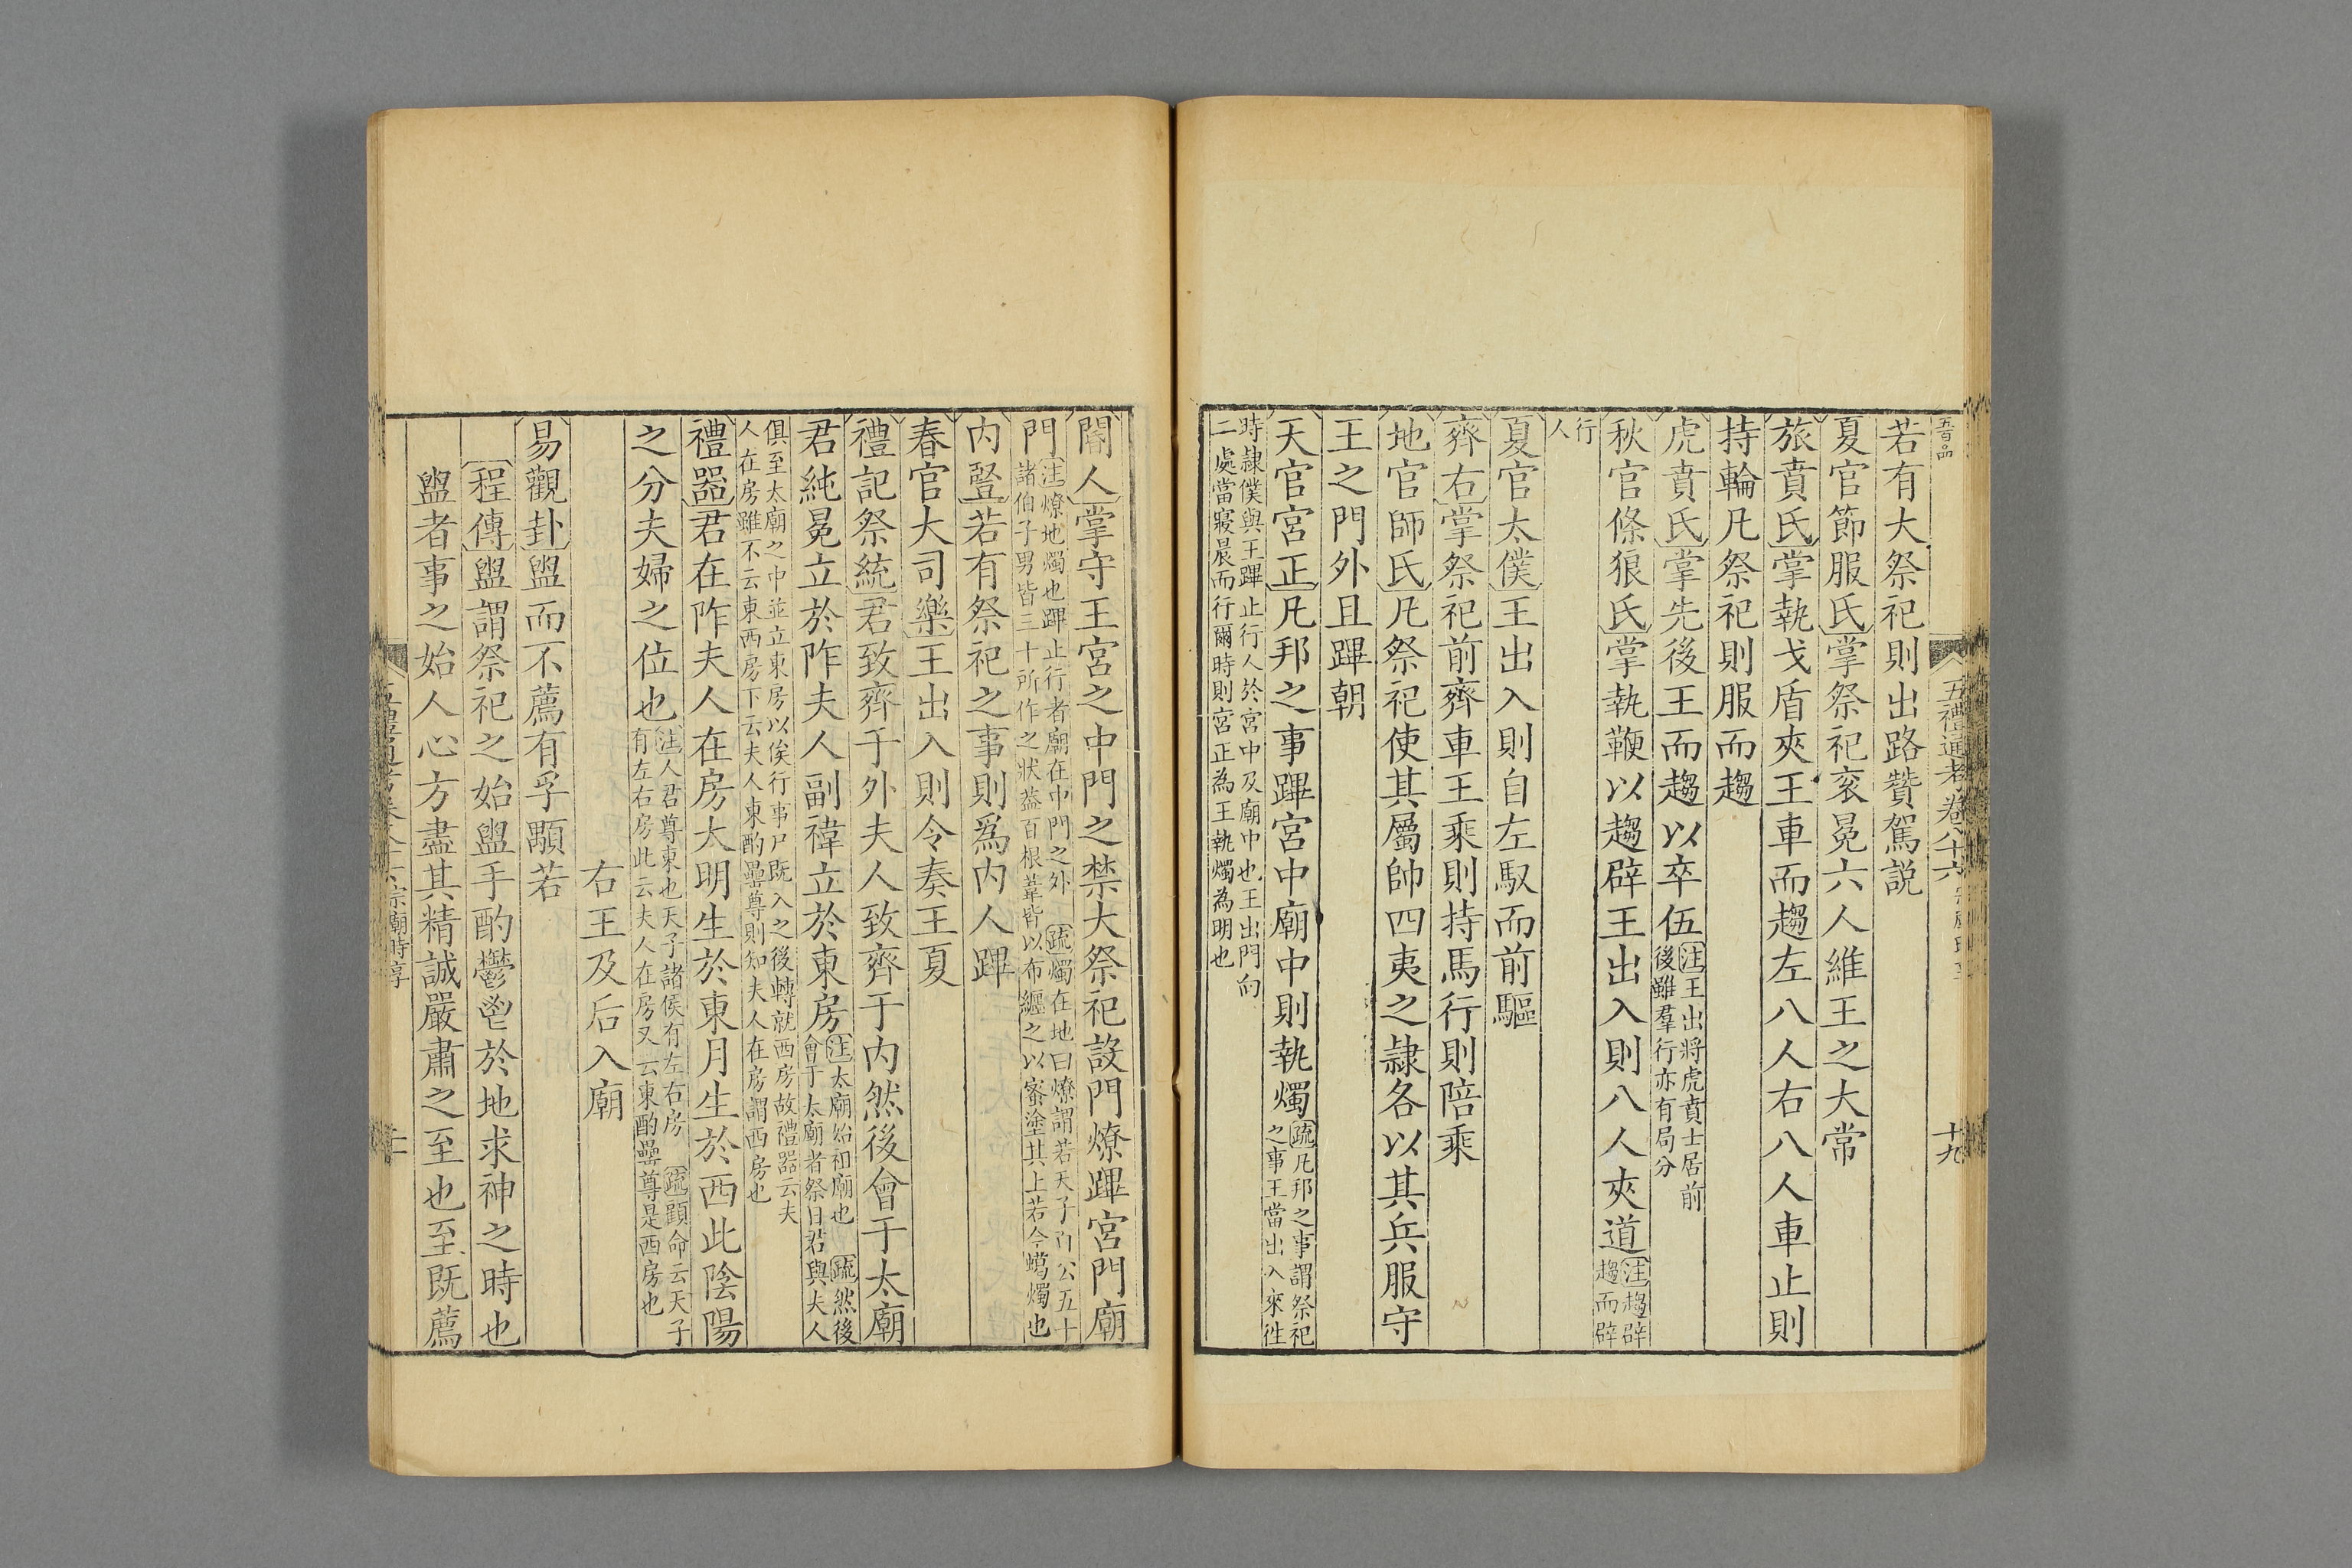 五禮通考卷八十六
十九
若有大祭祀則出路贊駕說
夏官節服氏掌祭祀衮冕六人維王之大常
旅賁氏掌執戈盾夾王車而趨左八人右八人車止則
持輪凡祭祀則服而趨
虎賁氏掌先後王而趨以卒伍注王出將虎賁士居前
後雖羣行亦有局分
秋官條狼氏掌執鞭以趨辟王出入則八人夾道注趨辟
趨而辟
行
人
夏官太僕王出入則自左馭而前驅
齊右掌祭祀前齊車王乘則持馬行則陪乘
地官師氏凡祭祀使其屬帥四夷之隸各以其兵服守
王之門外且蹕朝
天官宮正凡邦之事蹕宮中廟中則執燭疏凡邦之事謂祭祀
之事王當出入來往
時隸僕與王蹕止行人於宮中及廟中也王出門向
二處當寢晨而行爾時則宮正為王執燭為明也
閽人掌守王宮之中門之禁大祭祀設門燎蹕宮門廟
門注燎地燭也蹕止行者廟在中門之外 疏燭在地曰燎謂若天子百公五十
諸伯子男皆三十所作之狀蓋百根葦皆以布纏之以蜜塗其上若今蠟燭也
內豎若有祭祀之事則爲內人蹕
春官大司樂王出入則令奏王夏
禮記祭統君致齊于外夫人致齊于內然後會于太廟
君純冕立於阼夫人副褘立於東房注太廟始祖廟也 疏然後
會于太廟者祭日君與夫人
俱至太廟之中並立東房以俟行事尸既入之後轉就西房故禮器云夫
人在房雖不云東西房下云夫人東酌罍尊則知夫人在房謂西房也
禮器君在阼夫人在房大明生於東月生於西此陰陽
之分夫婦之位也注人君尊東也天子諸侯有左右房 疏顧命云天子
有左右房此云夫人在房又云東酌罍尊是西房也
右王及后入廟
易觀卦盥而不薦有孚顒若
程傳盥謂祭祀之始盥手酌鬱鬯於地求神之時也
盥者事之始人心方盡其精誠嚴肅之至也至既薦
宗廟時享